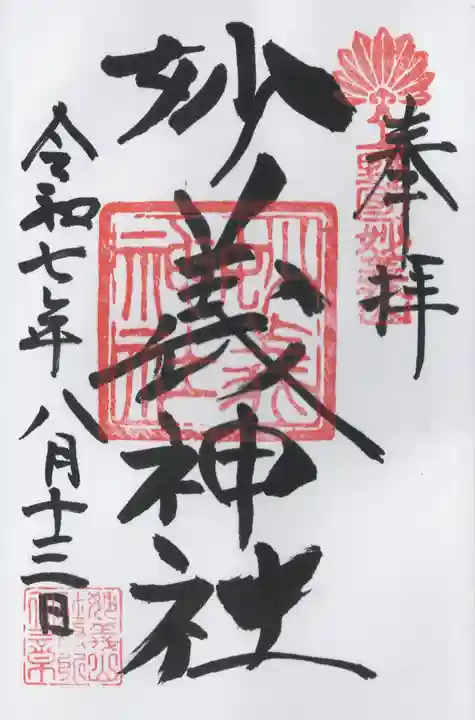 奉拝
妙義神社
令和七年八月十三日